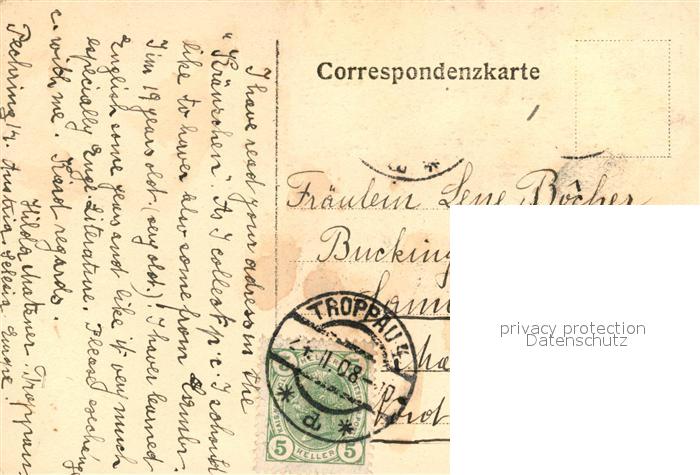 Correspondenzkarte
Fräulein Lene Bôcher
Bucking
privacy protection
Datenschutz
TROPPAU 4
II 08
d
5 HELLER 5
I have read your adress in the
"Kränzchen". As I collect p. c. I should
like to have also some from
I'm 19 years old (very old!) I have learned
English some years and like it very much
especially Engl. Literature. Please exchange
c. with me. Kind regards.
Hilda Troppau,
Pechring 17. Austria Silesia Europe!